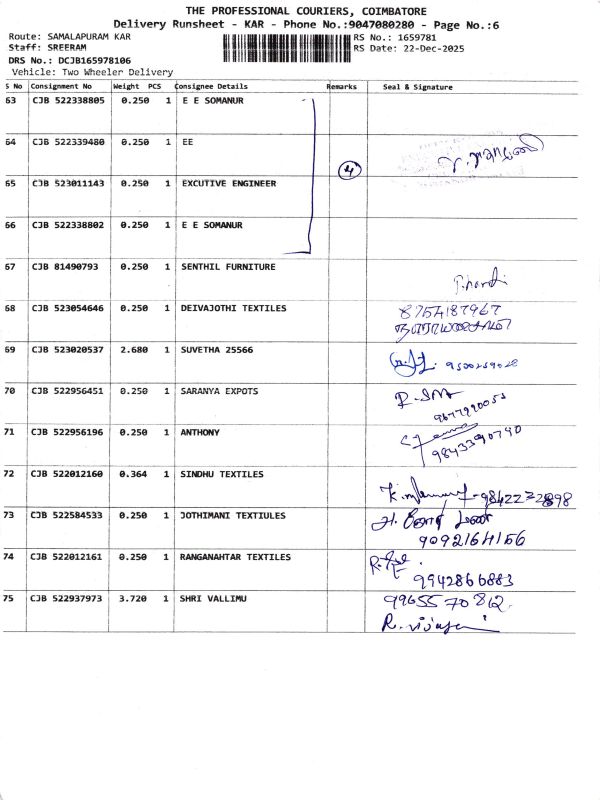 THE PROFESSIONAL COURIERS, COIMBATORE
Delivery Runsheet - KAR - Phone No.:9047080280 - Page No.:6
Route: SAMALAPURAM KAR
Staff: SREERAM
DRS No.: DCJB165978106
Vehicle: Two Wheeler Delivery
RS No.: 1659781
RS Date: 22-Dec-2025
S No Consignment No Weight PCS Consignee Details Remarks Seal & Signature
63 CJB 522338805 0.250 1 E E SOMANUR
64 CJB 522339480 0.250 1 EE
65 CJB 523011143 0.250 1 EXCUTIVE ENGINEER
4
66 CJB 522338802 0.250 1 E E SOMANUR
67 CJB 81490793 0.250 1 SENTHIL FURNITURE
68 CJB 523054646 0.250 1 DEIVAJOTHI TEXTILES 8754187967
69 CJB 523020537 2.680 1 SUVETHA 25566
70 CJB 522956451 0.250 1 SARANYA EXPOTS
71 CJB 522956196 0.250 1 ANTHONY 9843390790
72 CJB 522012160 0.364 1 SINDHU TEXTILES
73 CJB 522584533 0.250 1 JOTHIMANI TEXTIULES
9092164156
74 CJB 522012161 0.250 1 RANGANAHTAR TEXTILES
9942866883
75 CJB 522937973 3.720 1 SHRI VALLIMU 9965570812